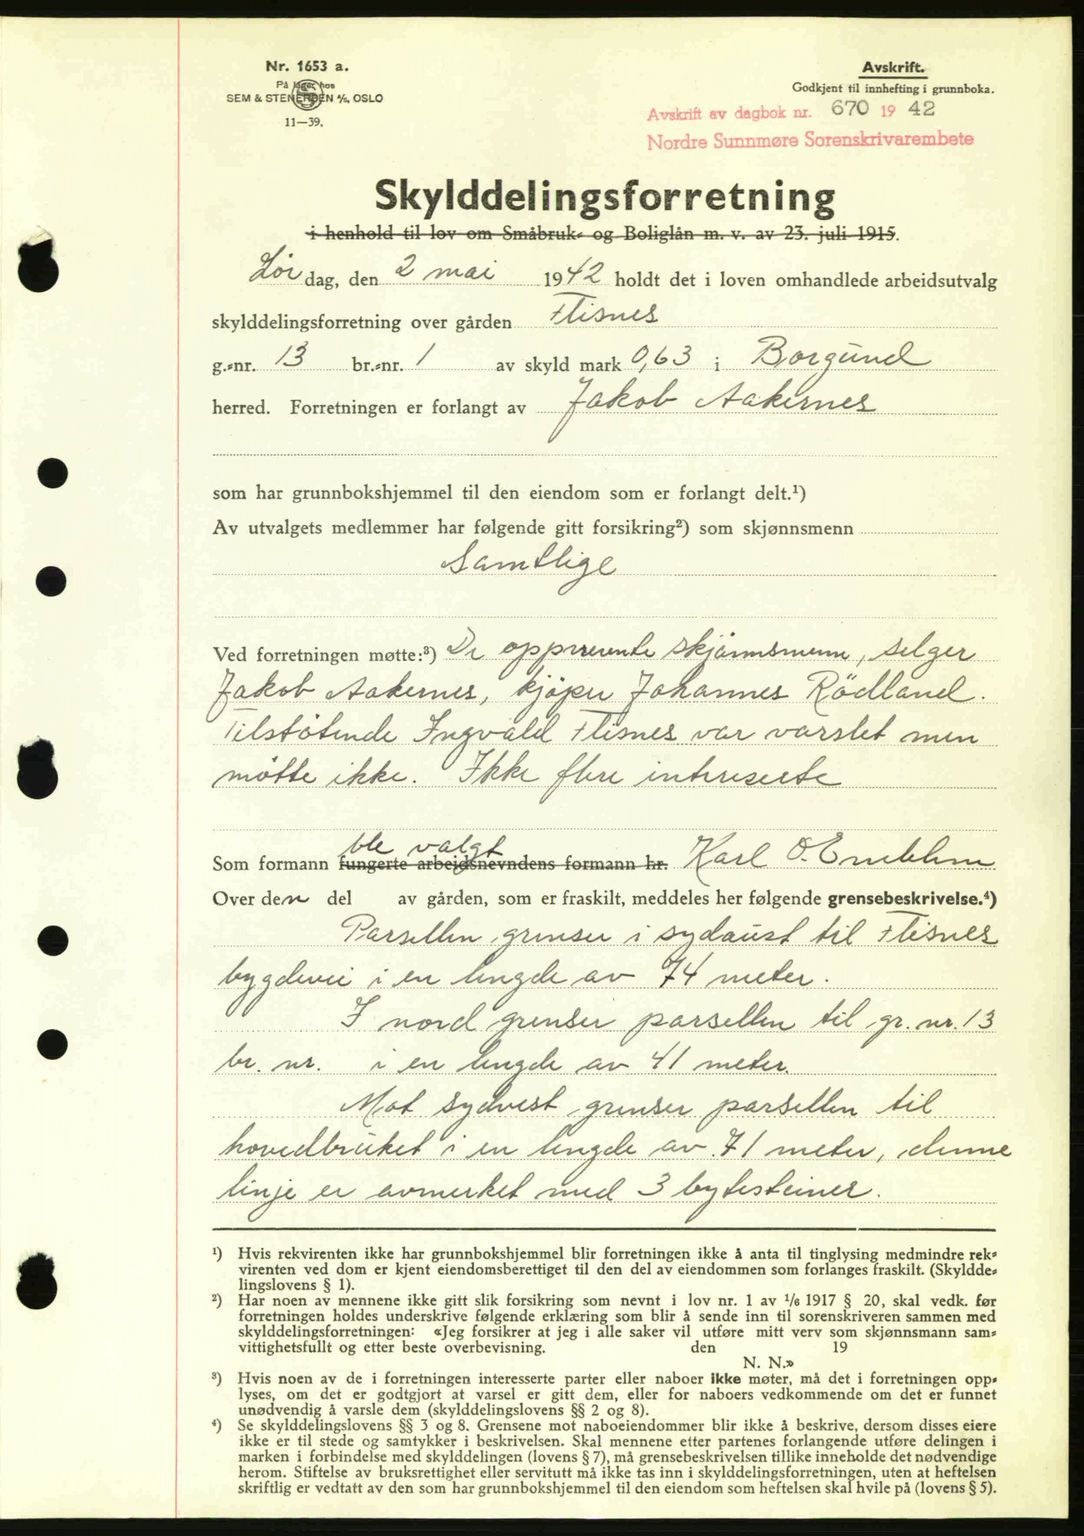 Nr. 1653 a.
På lager hos
SEM & STENERSEN A/S, OSLO
11—39.
Avskrift.
Godkjent til innhefting i grunnboka.
Avskrift av dagbok nr. 670 19 42
Nordre Sunnmøre Sorenskrivarembete
Skylddelingsforretning
i henhold til lov om Småbruk- og Boliglån m. v. av 23. juli 1915.
Lørdag, den 2 mai 1942 holdt det i loven omhandlede arbeidsutvalg
skylddelingsforretning over gården Flisnes
g.-nr. 13 br.-nr. 1 av skyld mark 0,63 i Borgund
herred. Forretningen er forlangt av Jakob Aakernes
som har grunnbokshjemmel til den eiendom som er forlangt delt.¹)
Av utvalgets medlemmer har følgende gitt forsikring²) som skjønnsmenn
Samtlige
Ved forretningen møtte:³) De oppnevnte skjönnsmenn, selger
Jakob Aakernes, kjöper Johannes Rödland.
Tilstötende Ingvald Flisnes var varslet men
mötte ikke. Ikke flere interiserte
ble valgt
Som formann fungerte arbeidsnevndens formann hr. Karl O. Emblem
Over den del av gården, som er fraskilt, meddeles her følgende grensebeskrivelse.⁴)
Parsellen grenser i sydaust til Flisnes
bygdevei i en lengde av 74 meter.
I nord grenser parsellen til gr. nr. 13
br. nr. i en lengde av 41 meter.
Mot sydvest grenser parsellen til
hovedbruket i en lengde av 71 meter, denne
linje er avmerket med 3 bytesteiner.
¹) Hvis rekvirenten ikke har grunnbokshjemmel blir forretningen ikke å anta til tinglysing medmindre rek-
virenten ved dom er kjent eiendomsberettiget til den del av eiendommen som forlanges fraskilt. (Skyldde-
lingslovens § 1).
²) Har noen av mennene ikke gitt slik forsikring som nevnt i lov nr. 1 av 1/6 1917 § 20, skal vedk. før
forretningen holdes underskrive følgende erklæring som blir å sende inn til sorenskriveren sammen med
skylddelingsforretningen: «Jeg forsikrer at jeg i alle saker vil utføre mitt verv som skjønnsmann sam-
vittighetsfullt og etter beste overbevisning. den 19
N. N.»
³) Hvis noen av de i forretningen interesserte parter eller naboer ikke møter, må det i forretningen opp-
lyses, om det er godtgjort at varsel er gitt dem, eller for naboers vedkommende om det er funnet
unødvendig å varsle dem (skylddelingslovens §§ 2 og 8).
⁴) Se skylddelingslovens §§ 3 og 8. Grensene mot naboeiendommer blir ikke å beskrive, dersom disses eiere
ikke er til stede og samtykker i beskrivelsen. Skal mennene etter partenes forlangende utføre delingen i
marken i forbindelse med skylddelingen (lovens § 7), må grensebeskrivelsen tillike inneholde det nødvendige
herom. Stiftelse av bruksrettighet eller servitutt må ikke tas inn i skylddelingsforretningen, uten at heftelsen
skriftlig er vedtatt av den som har grunnbokshjemmel til den eiendom som heftelsen skal hvile på (lovens § 5).